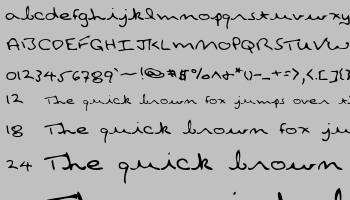 abcdefghijklmnopqrstuvwxy
ABCDEFGHIJKLMNOPQRSTUVW
0123456789`~!@#$%^&*()-_+=>,<.[]{
12 The quick brown fox jumps over
18 The quick brown fox ju
24 The quick brown